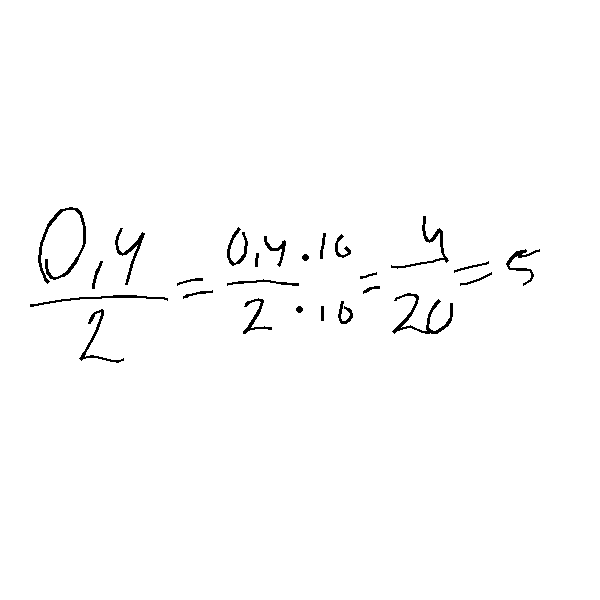 0,4/2 = 0,4·10/2·10 = 4/20 = 5